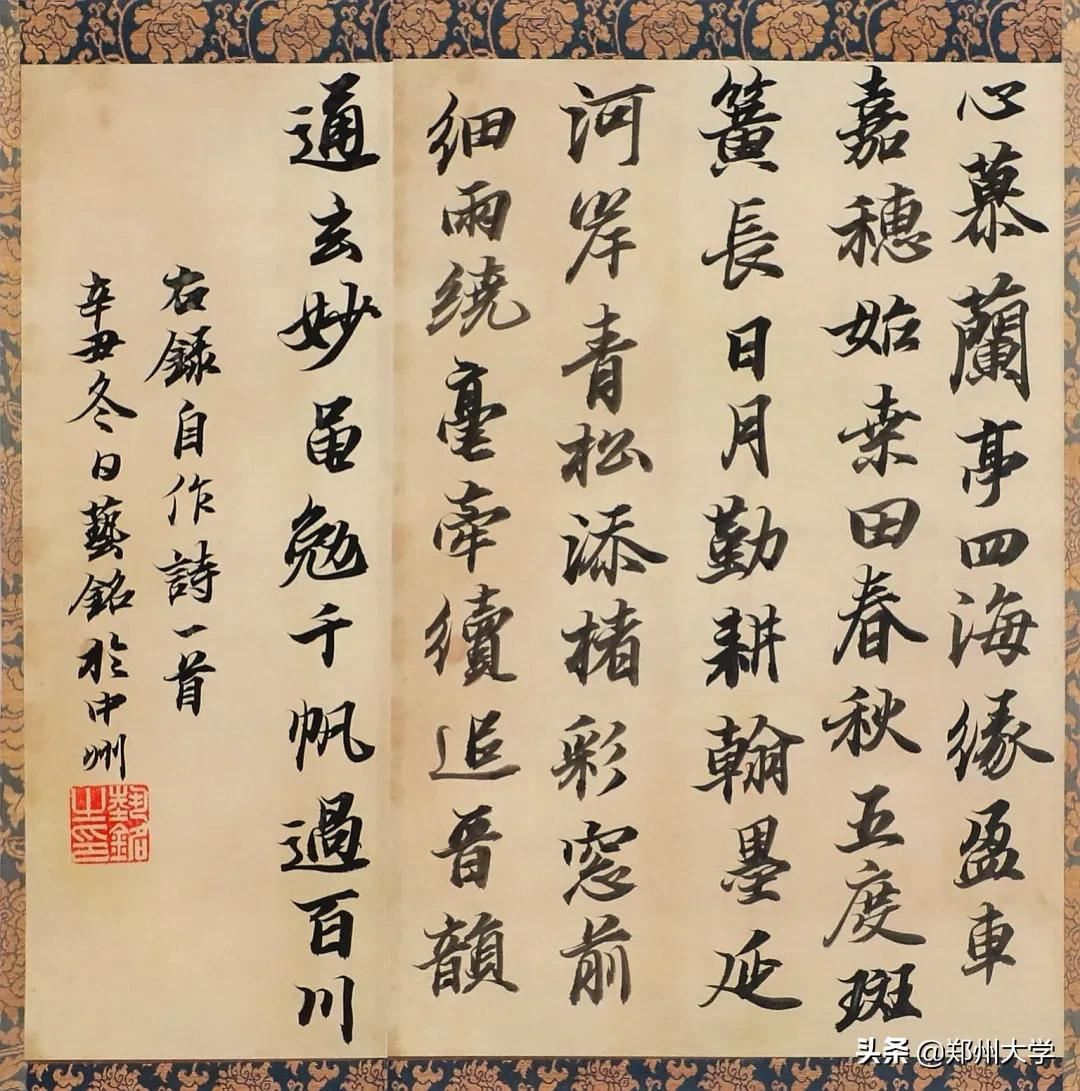 心慕蘭亭四海緣盈車
嘉穗始桑田春秋五度斑
簧長日月勤耕翰墨延
河岸青松添楮彩窓前
細雨繞毫牽續追晉韻
通玄妙黽勉千帆過百川
右録自作詩一首
辛丑冬日藝銘於中州
藝銘之印
头条 @郑州大学